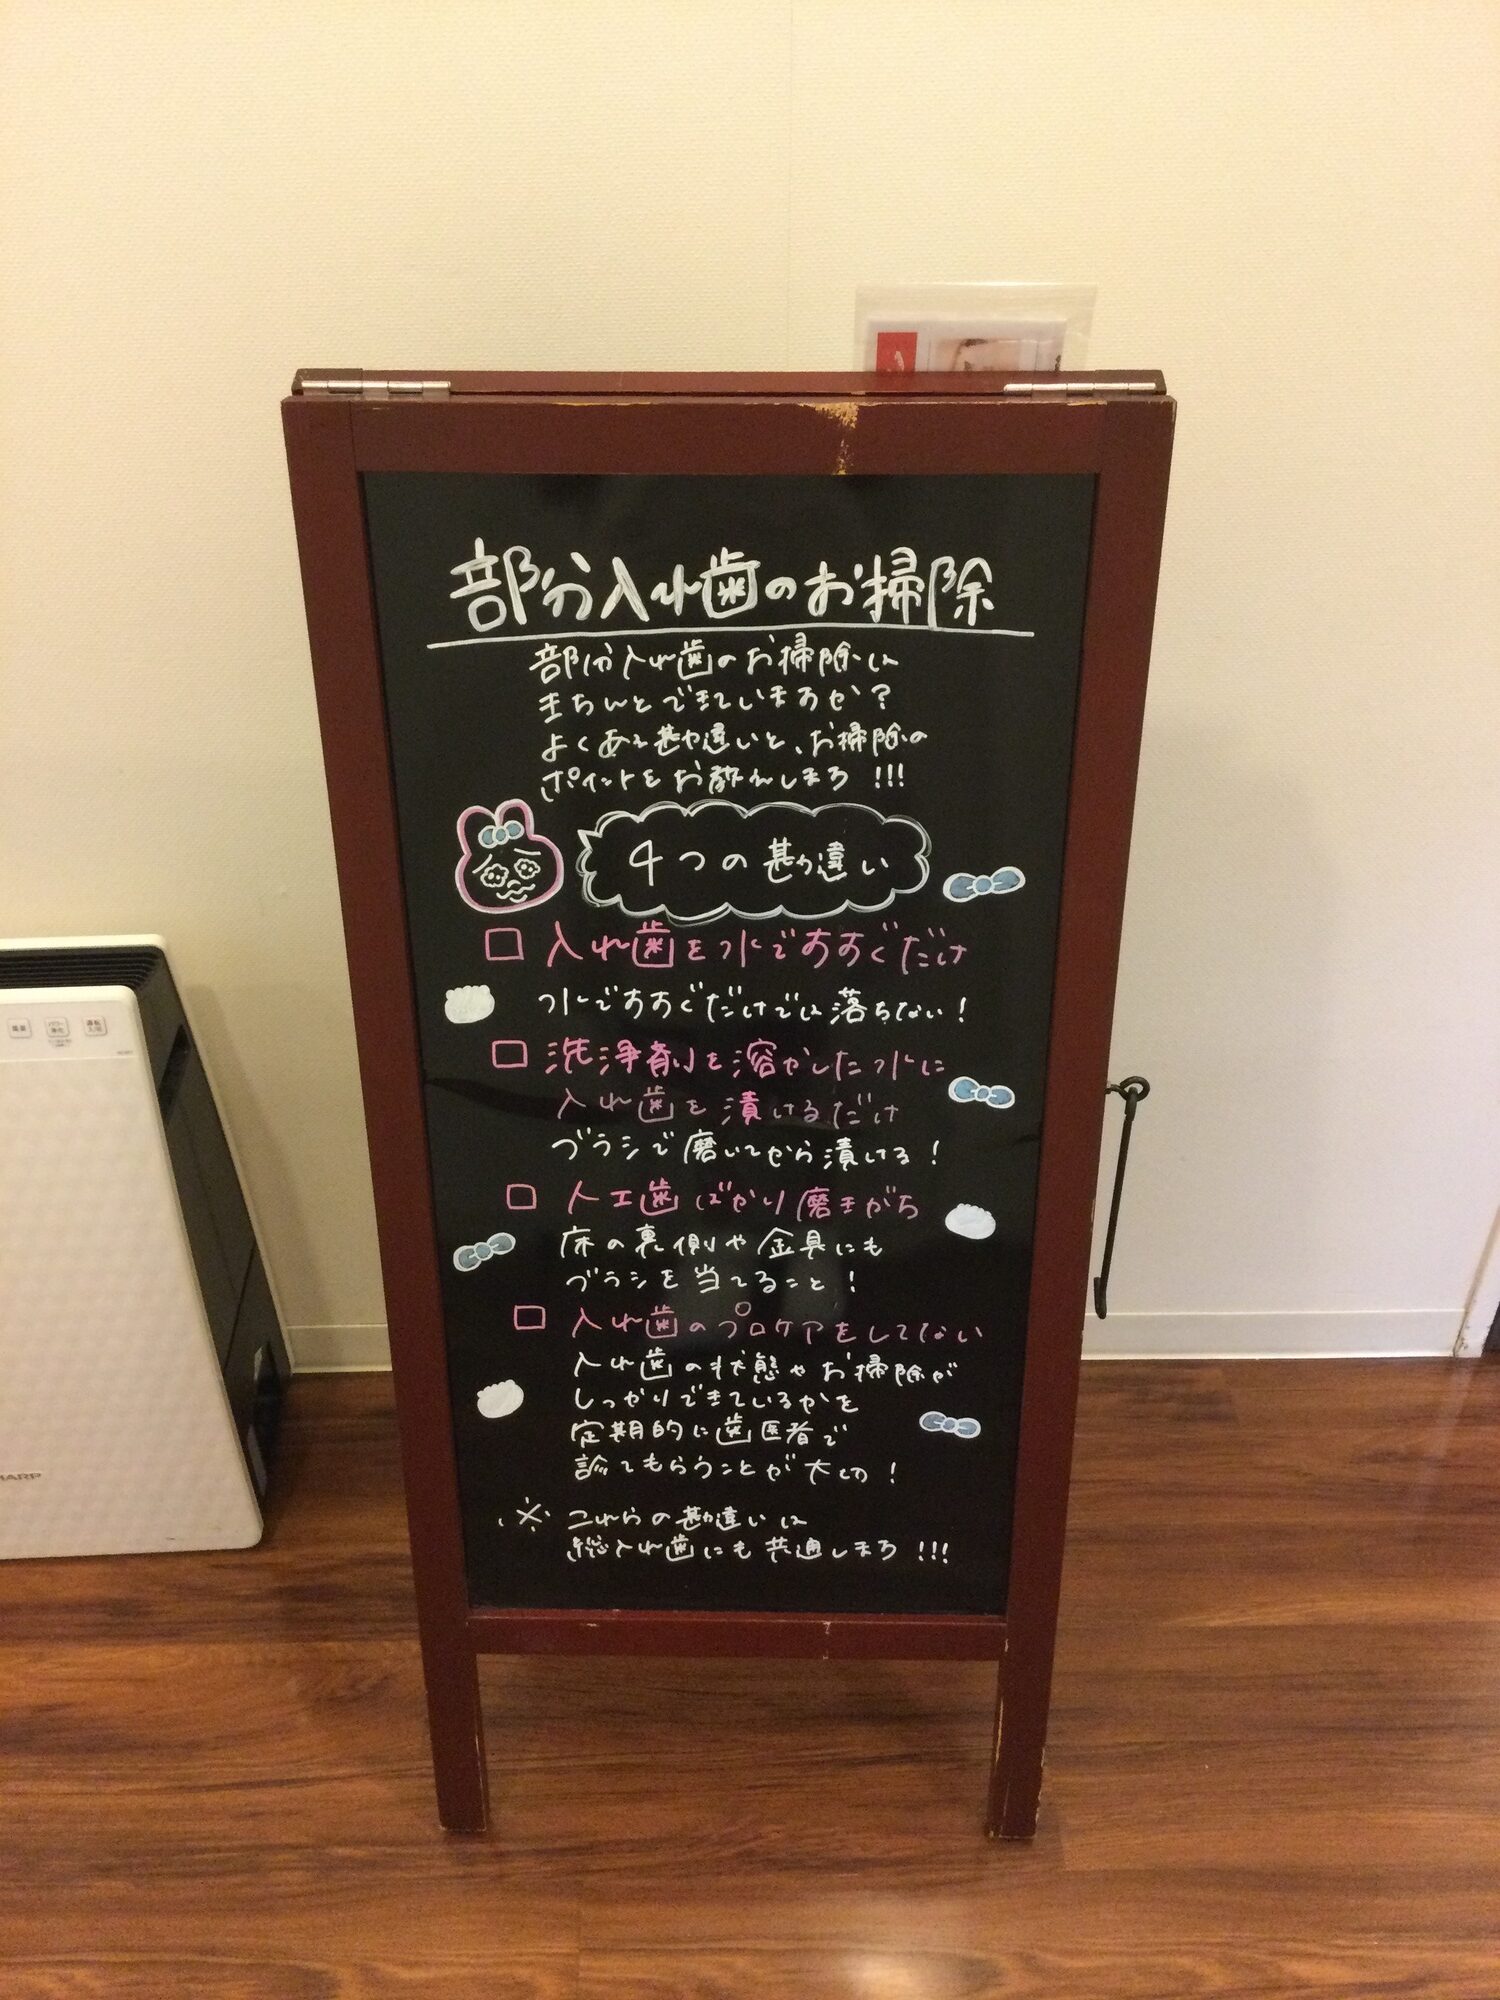 部分入れ歯のお掃除
部分入れ歯のお掃除は
きちんとできていますか?
よくある勘違いと、お掃除の
ポイントをお教えします!!!
4つの勘違い
□ 入れ歯を水ですすぐだけ
水ですすぐだけでは落ちない!
□ 洗浄剤を溶かした水に
入れ歯を漬けるだけ
ブラシで磨いてから漬ける!
□ 人工歯ばかり磨きがち
床の裏側や金具にも
ブラシを当てること!
□ 入れ歯のプロケアをしてない
入れ歯の状態やお掃除が
しっかりできているかを
定期的に歯医者で
診てもらうことが大切!
※ これらの勘違いは
総入れ歯にも共通します!!!